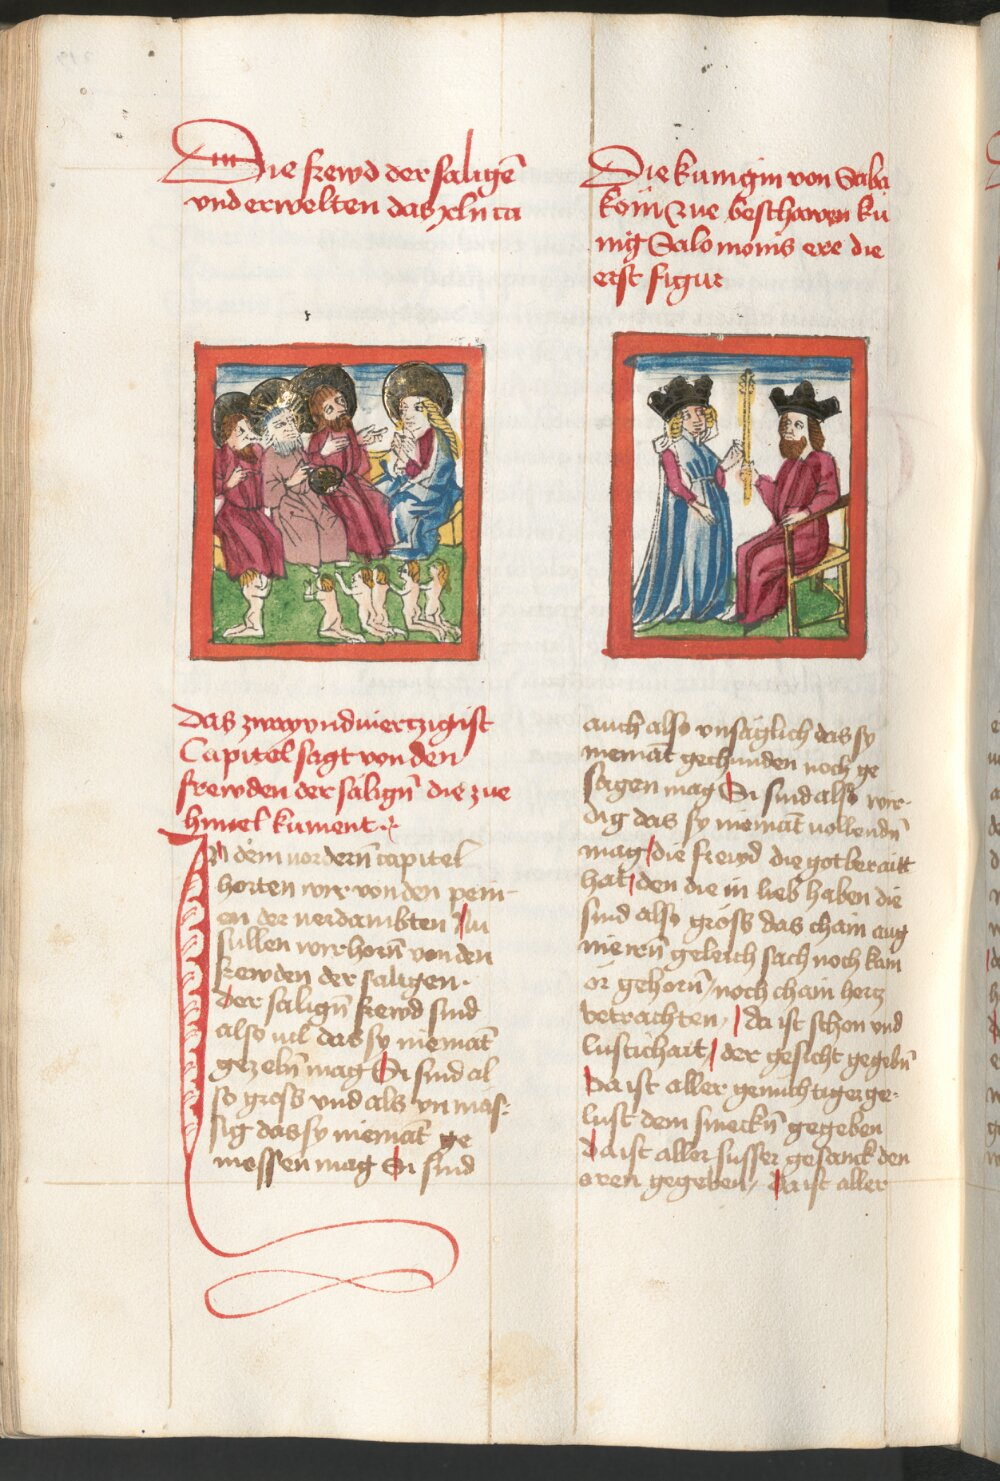 Die frewd der saligē
vnd erwelten das xlij ca
Das zway vnd viertzigist
Capitel sagt von den
frewden der säligñ die zue
himel kument
In dem vordern̄ capitel
horten wir von den pein-
en der verdambten Nu
sullen wir horn̄ von den
frewden der saligen.
Der säligñ frewd sind
also vil das sy niemāt
gezeln̄ mag Si sind al
so gross vnd als vn mas-
sig das sy niemāt ge
messen mag Si sind
Die kunigin von Saba
kom zue beschawen ku
nig Salomonis ere die
erst figur
auch also vnsäglich das sy
niemāt gechunden noch ge
sagen mag Si sind also wir-
dig das sy niemāt vollendn̄
mag die frewd die got berait
hat den die in lieb haben die
sind also gröss das chain aug
nie irn̄ geleich sach noch kain
or gehorn̄ noch chain hertz
betrachten, da ist schon vnd
lustichait, der gesicht gegebn̄
Da ist aller genuchtiger ge-
lust dem smeckn̄ gegeben
Da ist aller susser gesanck den
oren gegeben, Da ist aller